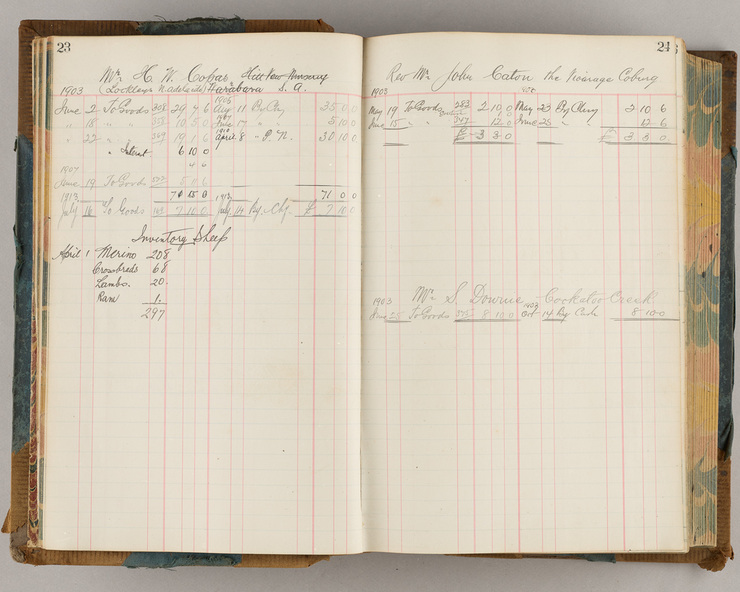 23
Mr. H. W. Cobar Hill View Nursery
1903 (Lockleys N. Adelaide) Yarabara S. A.
1905
June 2 To Goods 308 29 4 6 Aug 11 By Chq 35 0 0
" 18 " " 10 5 0 June 17 " " 5 10 0
1910
" 22 " " 19 1 6 April 8 " P. N. 30 10 0
" Interest 6 10 0
1907
June 19 To Goods 5 6
70 15 0 71 0 0
1913 1913
July 16 To Goods 7 10 0 July 14 By Chq £ 7 10 0
Inventory Sheep
April 1 Merino 208
Crossbreds 68
Lambs. 20.
Ram 1.
297
24
Rev Mr. John Caton The Coburg
1903
May 19 To Goods 283 2 10 6 May 23 By Chq 2 10 6
June 15 " " 347 12 6 June 25 " " 12 6
£ 3 3 0 £ 3 3 0
Mr. S. Downie Cockatoo Creek
1903 1903
June 25 To Goods 8 10 0 Oct 14 By Cash 8 10 0